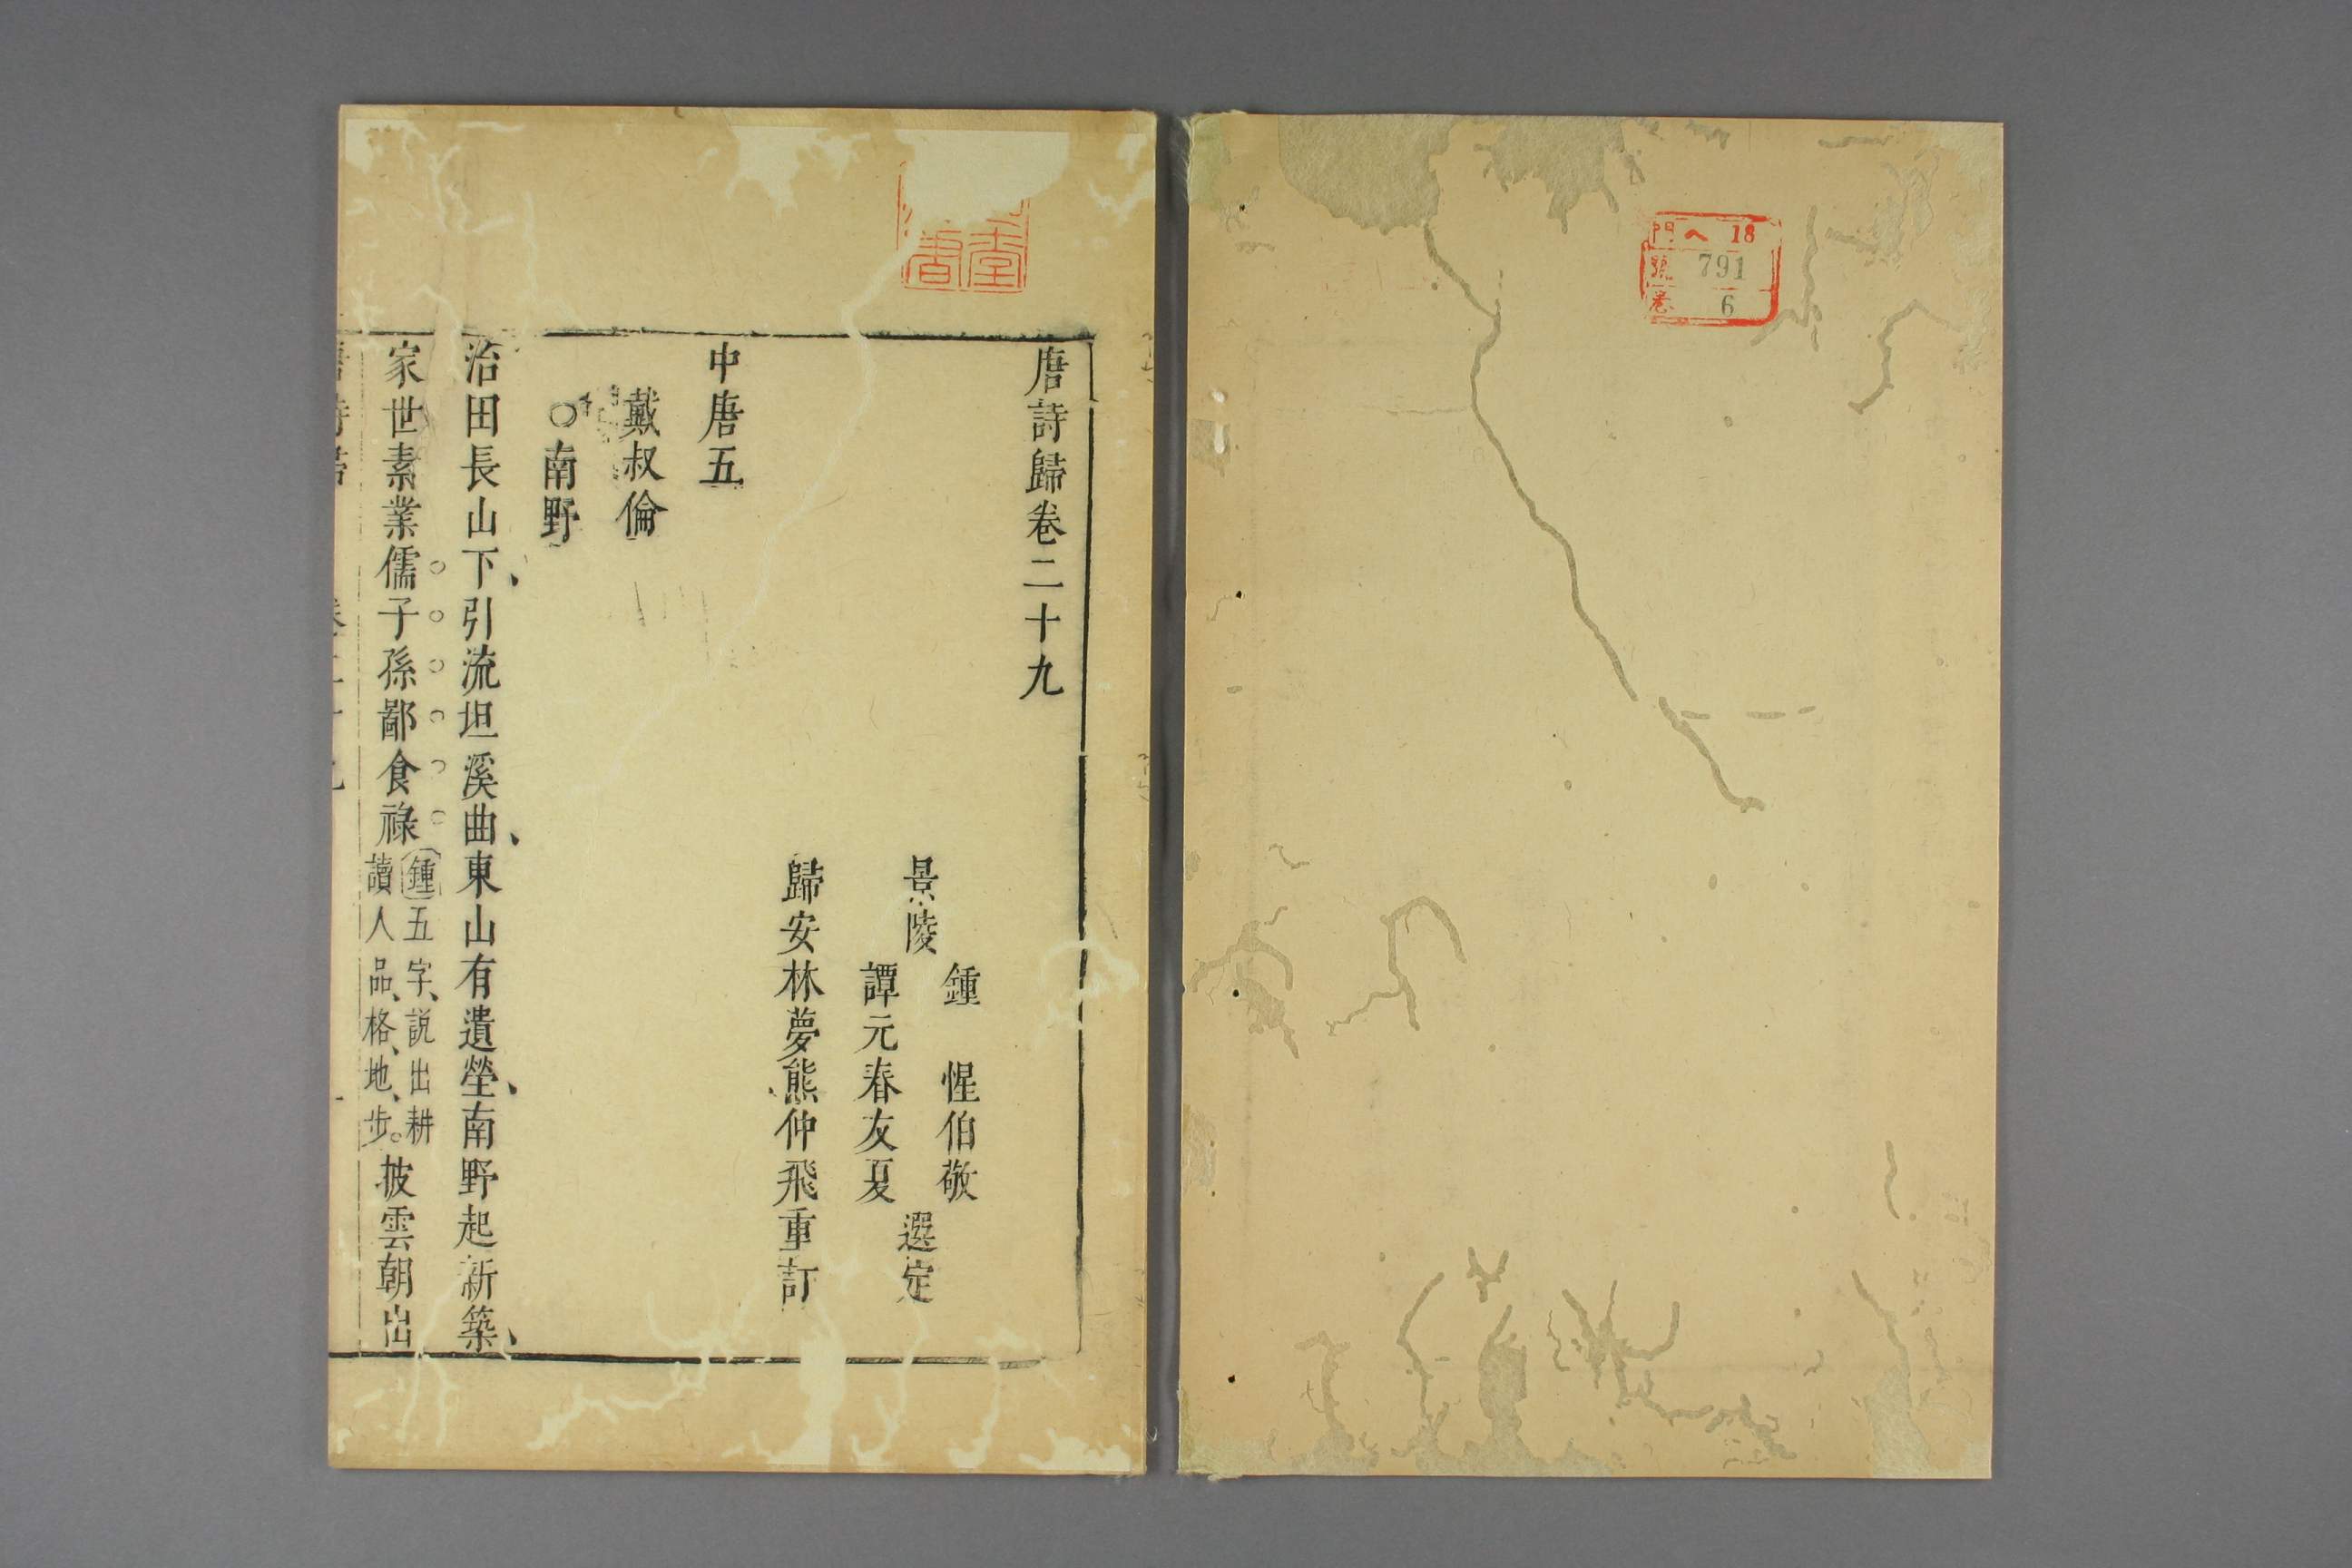 門 ヘ 18
號 791
卷 6
唐詩歸卷二十九
景陵
鍾 惺伯敬
譚元春友夏
選定
歸安林夢熊仲飛重訂
中唐五
戴叔倫
○南野
治田長山下、引流坦溪曲、東山有遺塋、南野起新築、
家世素業儒子孫鄙食祿
鍾五字、說出耕
讀人品、格、地、步。
披雲朝出